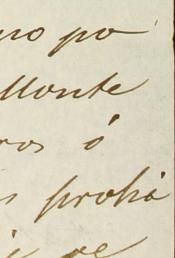 no po
Monte
ros ó
s prohi